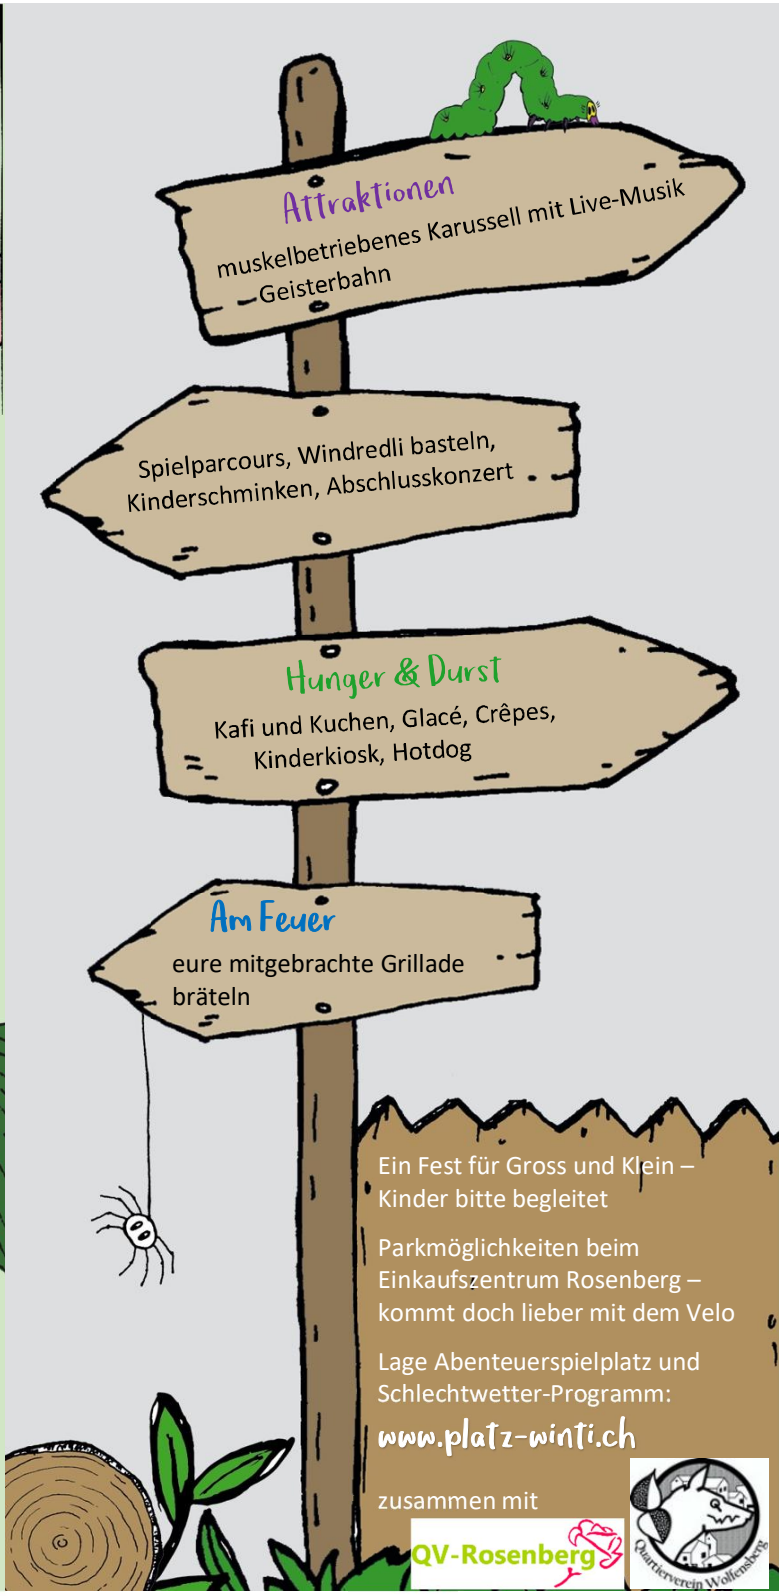 Attraktionen
muskelbetriebenes Karussell mit Live-Musik
Geisterbahn
Spielparcours, Windredli basteln,
Kinderschminken, Abschlusskonzert
Hunger & Durst
Kafi und Kuchen, Glacé, Crêpes,
Kinderkiosk, Hotdog
Am Feuer
eure mitgebrachte Grillade
bräteln
Ein Fest für Gross und Klein –
Kinder bitte begleitet
Parkmöglichkeiten beim
Einkaufszentrum Rosenberg –
kommt doch lieber mit dem Velo
Lage Abenteuerspielplatz und
Schlechtwetter-Programm:
www.platz-winti.ch
zusammen mit
QV-Rosenberg
Quartierverein Wolfensberg